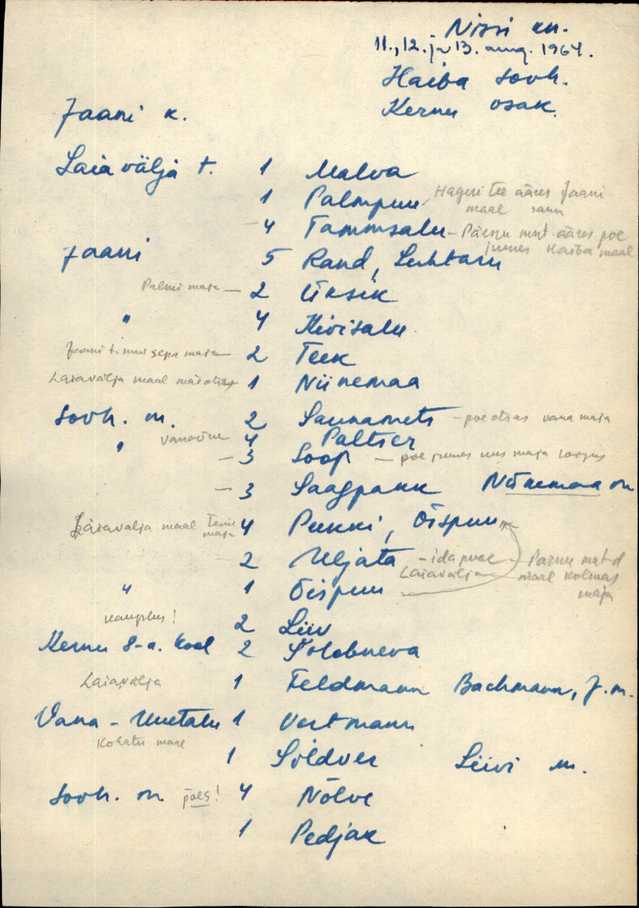 Nissi kh.
11., 12. ja 13. aug. 1964.
Haiba sovh.
Kernu osak.
Jaani k.
Laiavälja t. 1 Malva
1 Palmpuu Hageri tee ääres Jaani
maal
4 Tammsalu – Pärnu mnt ääres poe
juures Haiba maal
Jaani 5 Rand, Luhtaru
Palmi maja – 2 Üksik
" 4 Kivisalu
2 Teek
Laiavälja maal 1 Niinemaa
Sovh. m. 2 Saunamets – poe otsas vana maja
" 4 Paltser
– 3 Soop – poe juures uus maja
– 3 Saagpakk Niinemaa om
Laiavälja maal Teine maja 4 Pukki, Õispuu
2 Uljata – ida pool Pärnu mnt d
Laiavälja maal kolmas
maja
" 1 Õispuu
kauplus! 2 Liiv
Kernu 8-a. kool 2 Tolobneva
Laiavälja 1 Feldmann Bachmann, J. m.
Vana-Uuetalu 1 Vertmann
Kohatu maal
1 Sõldver Liivi m.
Sovh. m. poes! 4 Nõlve
1 Pedjak